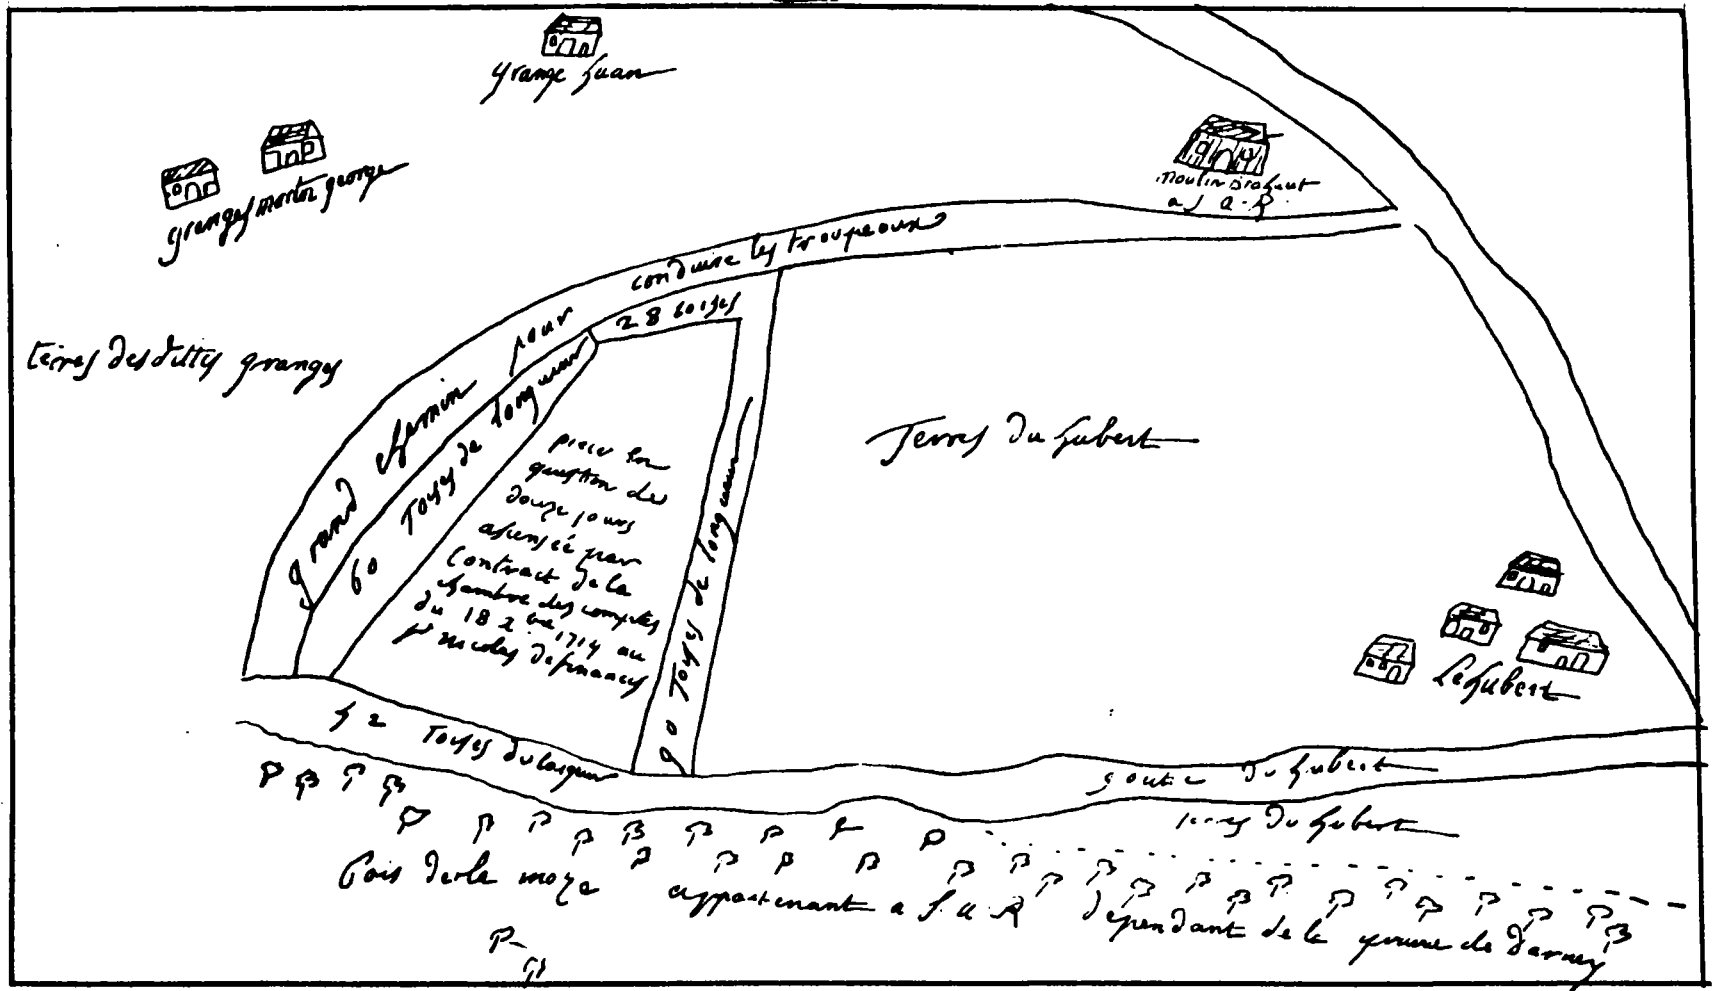 grange huan
granges morton george
moulin brahaut
a S A R
grand chemin pour conduire les troupeaux
28 toises
terres des dittes granges
60 Toises de longueur
piece en
question des
douze jours
asensée par
Contract de la
Chambre des comptes
du 18 xbre 1714 au
Sr nicolas definances
90 Toises de longueur
Terres Du hubert
Le hubert
52 Toises Du largeur
goute Du hubert
terres Du hubert
bois de la
appartenant a S A R dependant de la de Darney